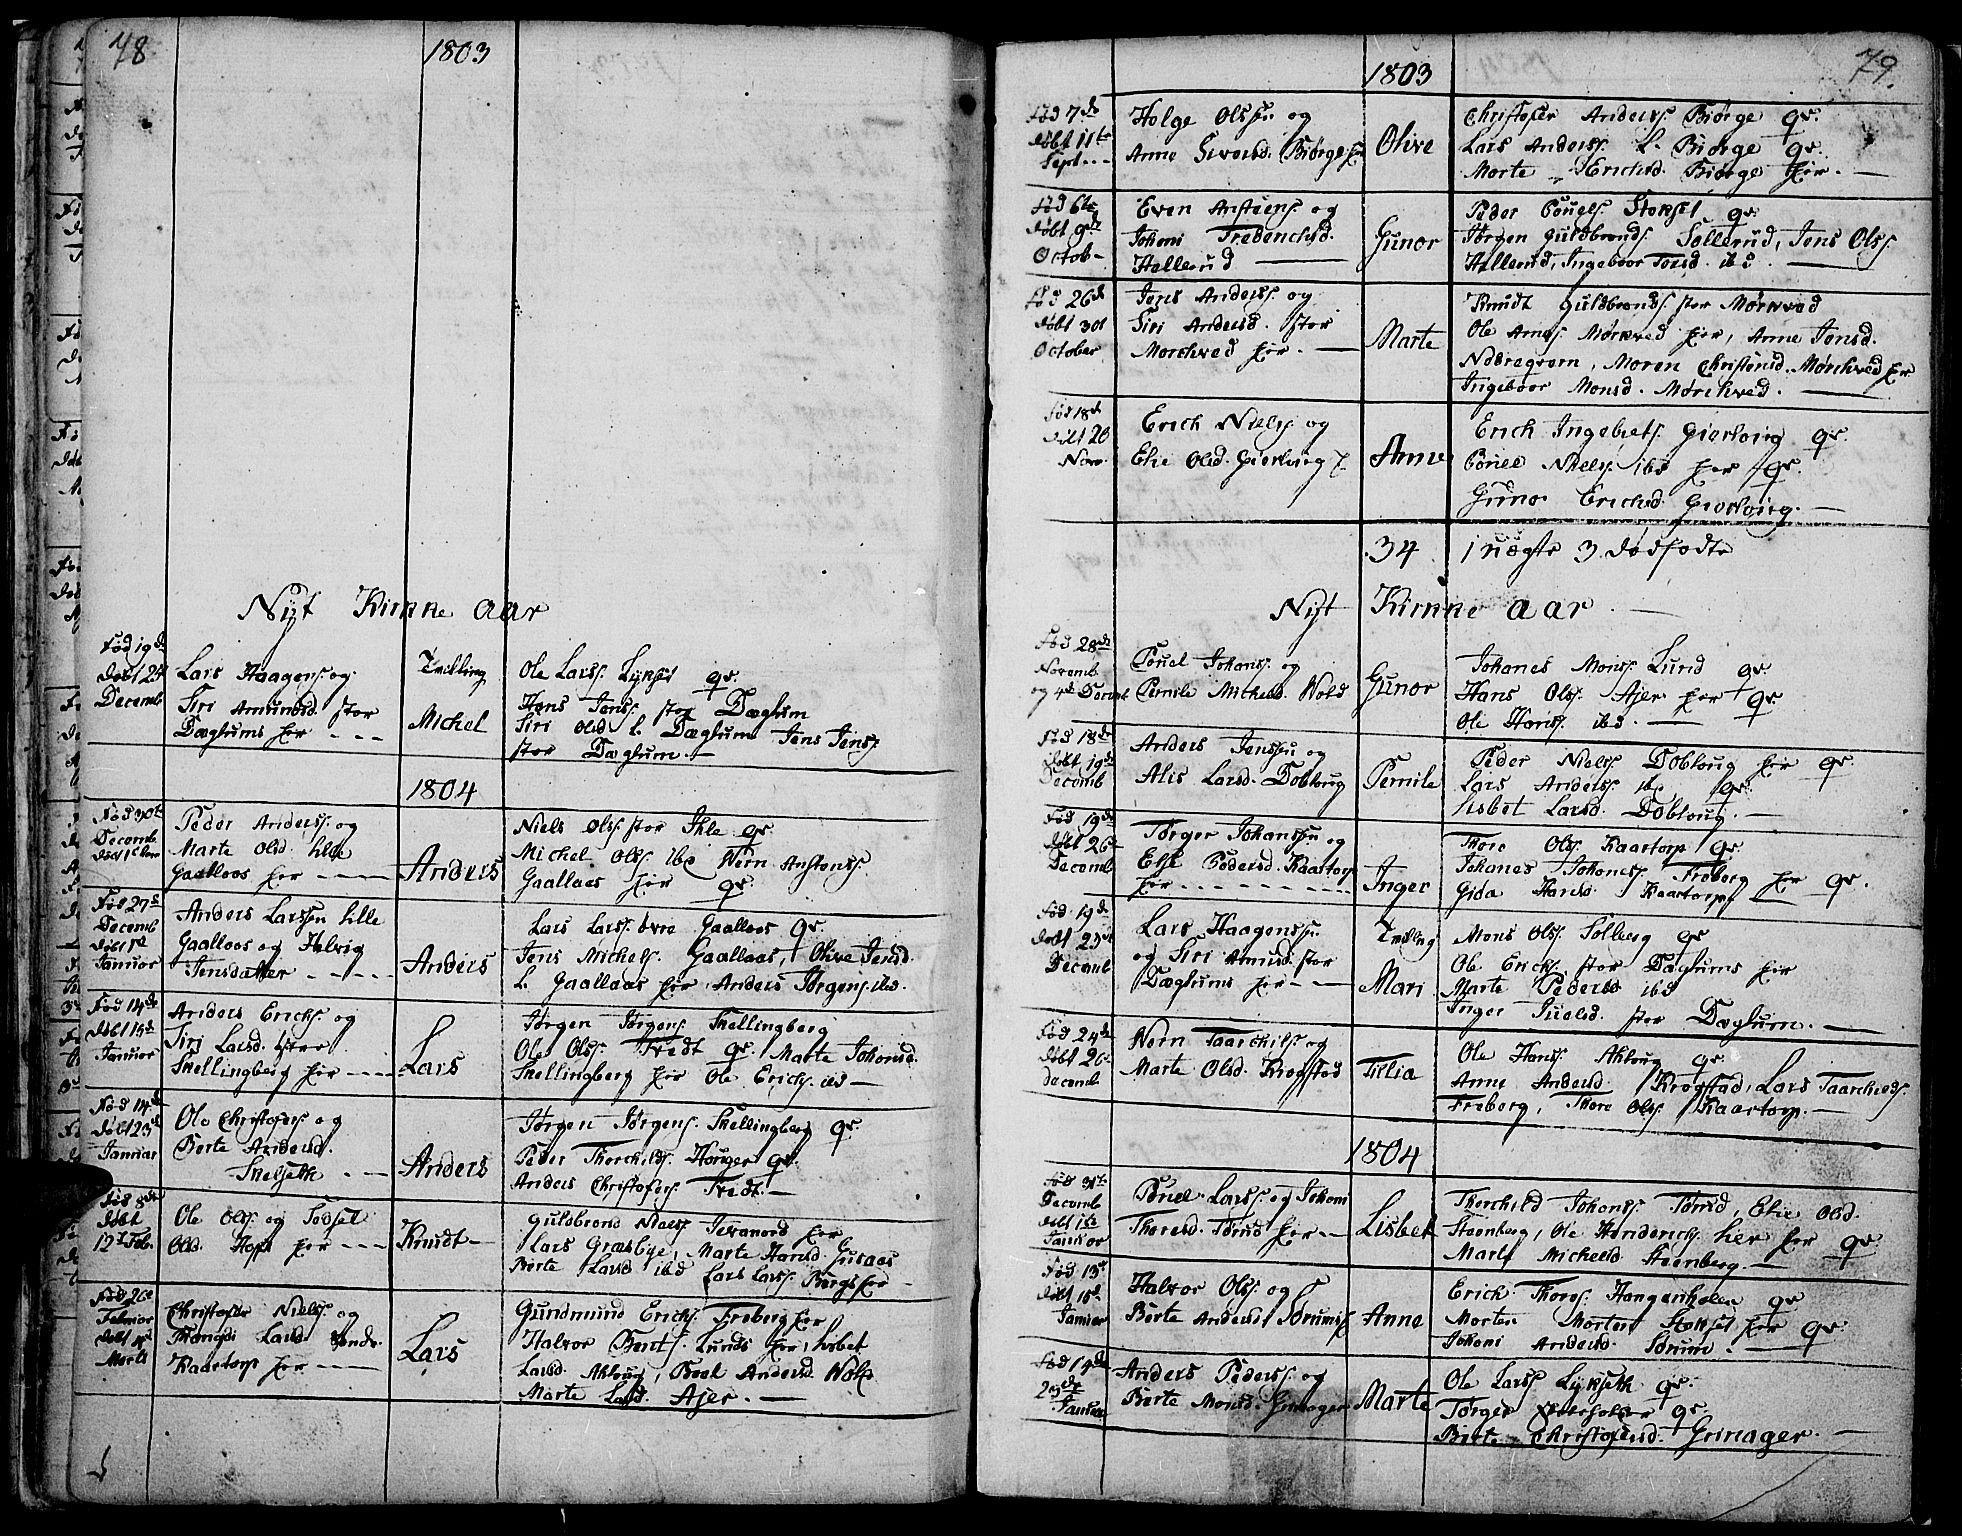 78
1803
Nyt Kirke aar
Fød 19de
døbt 25
Decemb
Lars Haagens. og
Siri Amundsd. stor
Dæglums hr - - -
Tvilling
Michel
Ole Larss. Lykset qr.
Hans Jenss. stor Dæglum
Siri Olsd. l. Dæglum Jens Jens.
stor Dæglum. -
1804
Fød 30te
Decemb
Peder Anderss. og
Marte Olsd. lille
Gaalloos hr - - -
Anders
Niels Olss. stor Ihle qr
Michel Olss. ibd
Gaallaas hr qr.
Fød 27de
Decemb
døbt 1ste
Januar
Anders Larssen lille
Gaalloos og Helvig
Jensdatter - - - -
Anders
Lars Larss. øvre Gaalloos qr.
Jens Michels. Gaallaas, Olive Jensd.
L. Gaallaas hr, Anders Jørgens. ibd.
Fød 14de
døbt 15de
Januar
Anders Erichs. og
Siri Larsd.
Skellingberg hr - - -
Lars
Jørgen Jørgens. Skellingberg
Ole Olss. Tredt qr. Marte Johansd.
Skellingberg hr Ole Erichs. ibd -
Fød 14de
døbt 23de
Januar
Ole Christofers. og
Berte Andersd.
Skelseth - -
Anders
Jørgen Jørgens. Skellingberg qr.
Peder Thorchilds. Houger qr.
Anders Christofers. Tredt. -
Fød 8de
Døbt
12te Feb.
Ole Olss. og
Olsd. hr - -
Knudt -
Guldbrand Niels. hr
Lars Græsbye, Marte Hansd.
Berte Larsd ibd Lars Larss. Berg hr -
Fød 26de
Februar
Døbt
Marts
Christofer Niels. og
Larsd. søndr.
Kaartorp hr - - -
Lars
Gundmund Erichs. Freberg hr
Halvor Bentss. Lunds hr, Lisbet
Larsd. Ahloug, Boel Andersd. Wold
Marte Larsd. Ajer. -
1803
79.
Fød 7de
døbt 11te
Sept - -
Holge Olssen og
Anne Siversd. Biørge hr
Olive
Christofer Anders. Biørge qr.
Lars Anderss. L. Biørge qr.
Marte Erichsd. Biørge hr. -
Fød 6te
døbt 9de
Octob -
Even Anstens. og
Johani Fredrichsd.
Hallerud -
Gunor
Peder Pouels. Stokset qr.
Jørgen Guldbrands. Sollerud, Jens Olss.
Hallerud, Ingeboor Torsd. ibd. -
Fød 26de
døbt 30te
October
Jens Anderss. og
Siri Andersd. stor
Morchved hr. -
Marte
Knudt Guldbrands. stor Mørkved
Ole Arness. Mørkved hr, Anne Jensd.
Nordregraven, Maren Christensd. Mørchved hr
Ingeboor Monsd. Mørchved. -
Fød 18de
døbt 20
Nov.
Erich Niels. og
Elie Olsd. Gierløvig
Anne
Erich Ingebrets. Gierløvig qr.
Pouel Niels. ibd hr qr.
Gunor Erichsd. Gierløvig. -
34 1 uægte 3 dødfødte
Nyt Kirke aar -
Fød 28de
Novemb
og 4de Decemb
Pouel Johanss. og
Pernile Michelsd. Wold
Gunor
Johanes Monss. Lund qr.
Hans Olss. Ajer hr qr
Ole Hanss. ibd. -
Fød 18de
døbt 19de
Decemb
Anders Jenssen og
Alis Larsd. Dobloug
Pernile
Peder Niels. Dobloug hr qr
Lars Anderss. ibd qr.
Lisbet Larsd. Dobloug. -
Fød 19de
døbt 26
Decemb
Tørger Johanssen og
Else Pedersd. Kaartorp
hr - - - - - - -
Inger
Thore Olss. Kaartorp qr.
Johanes Johaness. Freberg hr qr.
Gida Hansd. Kaartorp -
Fød 19de
døbt 25de
Decemb
Lars Haagenssen
og Siri Amundsd. stor
Dæglums hr - -
Tvilling
Mari
Mons Olss. Solberg qr
Ole Erichs. stor Dæglums hr
Marte Pedersd ibd
Inger Juelsd. stor Dæglum. -
Fød 24de
døbt 26
decemb
Taarchils. og
Marte Olsd. Krogstad
Tillia
Ole Hanss. Ahloug qr.
Anne Andersd. Krogstad, Lars Taarchelds.
Freberg, Thore Olss. Kaartorp. -
1804
Fød 31te
Decemb
døbt 1ste
Januar
Pouel Larss. og Johani
Thoresd. Tørud hr -
Lisbet
Thorchild Johanss. Tørud, Elie Olsd.
Steenberg, Ole Henderichs. her hr qr.
Marte Michelsd. Steenberg. -
Fød 13de
døbt 15de
Januar
Halvor Olss. og
Berte Andersd. Sørum
Anne
Erich Thores. Hangerholen qr
Morten Mortens. Stokset hr qr.
Johani Andersd. Sørum. -
Fød 14de
23de
Januar
Anders Pederss. og
Berte Monsd. Grinager
Marte
Ole Larss. Lykseth qr.
Tørger qr.
Berte Christofersd. Grinager. -